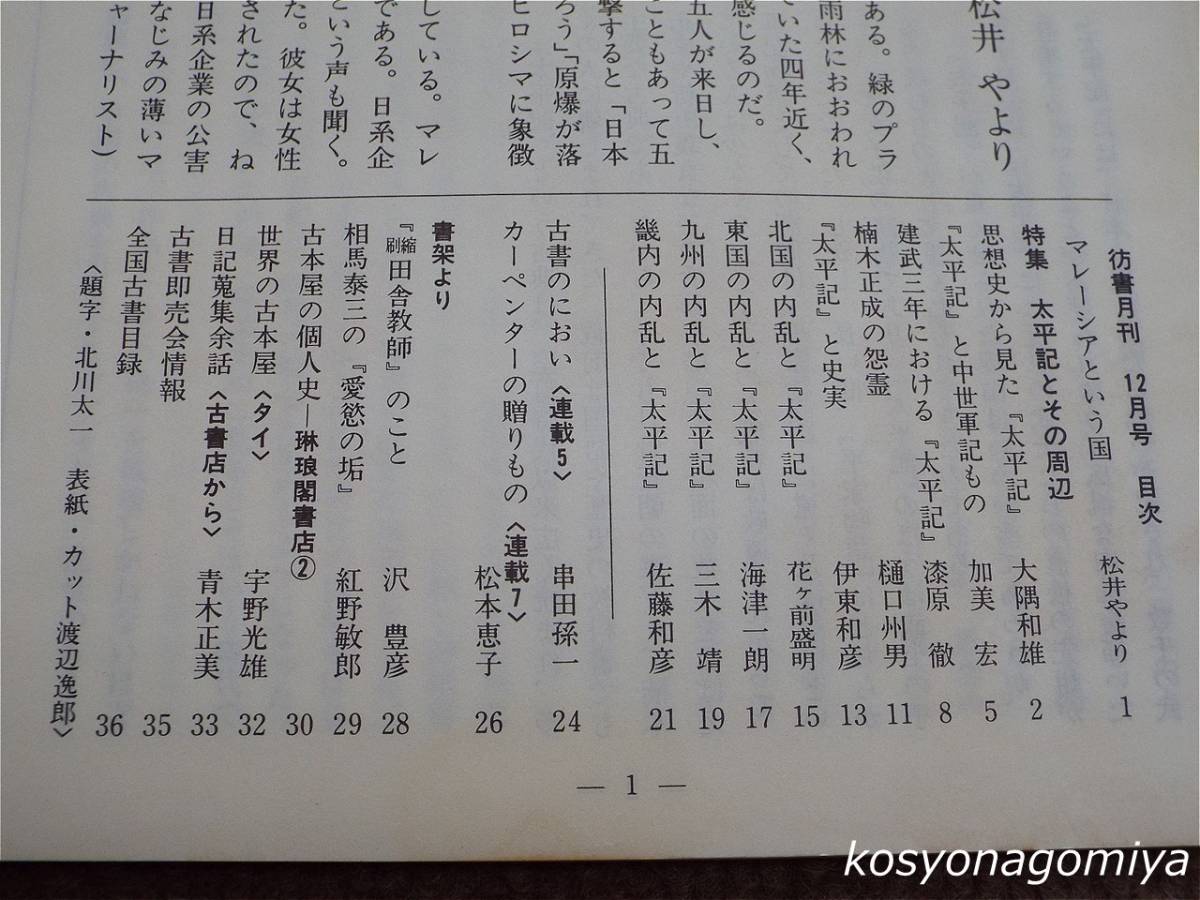 松井 やより
ある。緑のプラ
雨林におおわれ
ていた四年近く、
感じるのだ。
五人が来日し、
こともあって五
撃すると「日本
ろう」「原爆が落
ヒロシマに象徴
している。マレ
である。日系企
という声も聞く。
た。彼女は女性
されたので、ね
日系企業の公害
なじみの薄いマ
ャーナリスト)
彷書月刊 12月号 目次
マレーシアという国 松井やより 1
特集 太平記とその周辺
思想史から見た『太平記』 大隅和雄 2
『太平記』と中世軍記もの 加美 宏 5
建武三年における『太平記』 漆原 徹 8
楠木正成の怨霊 樋口州男 11
『太平記』と史実 伊東和彦 13
北国の内乱と『太平記』 花ヶ前盛明 15
東国の内乱と『太平記』 海津一朗 17
九州の内乱と『太平記』 三木 靖 19
畿内の内乱と『太平記』 佐藤和彦 21
古書のにおい〈連載5〉 串田孫一 24
カーペンターの贈りもの〈連載7〉 松本恵子 26
書架より
『縮刷田舎教師』のこと 沢 豊彦 28
相馬泰三の『愛慾の垢』 紅野敏郎 29
古本屋の個人史―琳琅閣書店② 30
世界の古本屋〈タイ〉 宇野光雄 32
日記蒐集余話〈古書店から〉 青木正美 33
古書即売会情報 35
全国古書目録 36
〈題字・北川太一 表紙・カット渡辺逸郎〉
— 1 —
kosyonagomiya